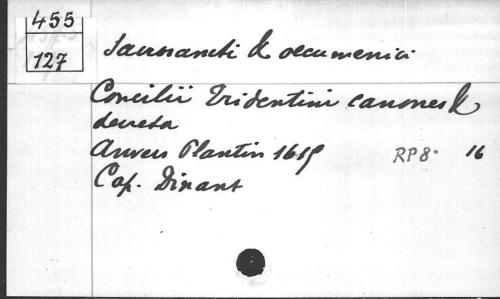 455
127
Sacrosancti & oecumenici
Concilii Tridentini canones &
decreta
Anvers Plantin
RP8. 16
Cap. Dinant